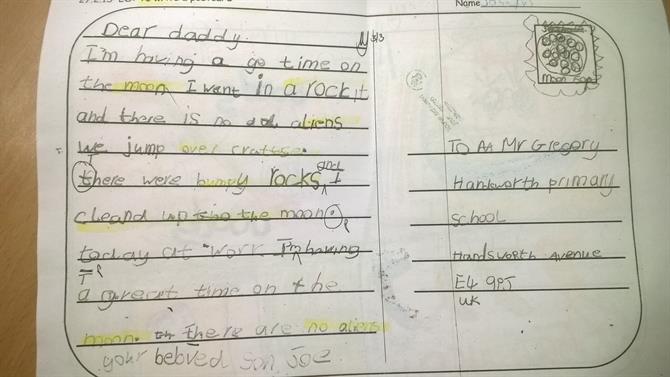 Name
Dear daddy
I'm having a go time on
the moon I went in a rockit
and there is no aliens
we jump over cratuse.
there were bumpy rocks and I
cleand up the moon.
today at work I'm having
a gurect time on the
moon. th there are no aliens
your beloved son Joe
moon
To Mr Gregory
Hankworth primary
school
Handsworth Avenue
E4 9PJ
UK